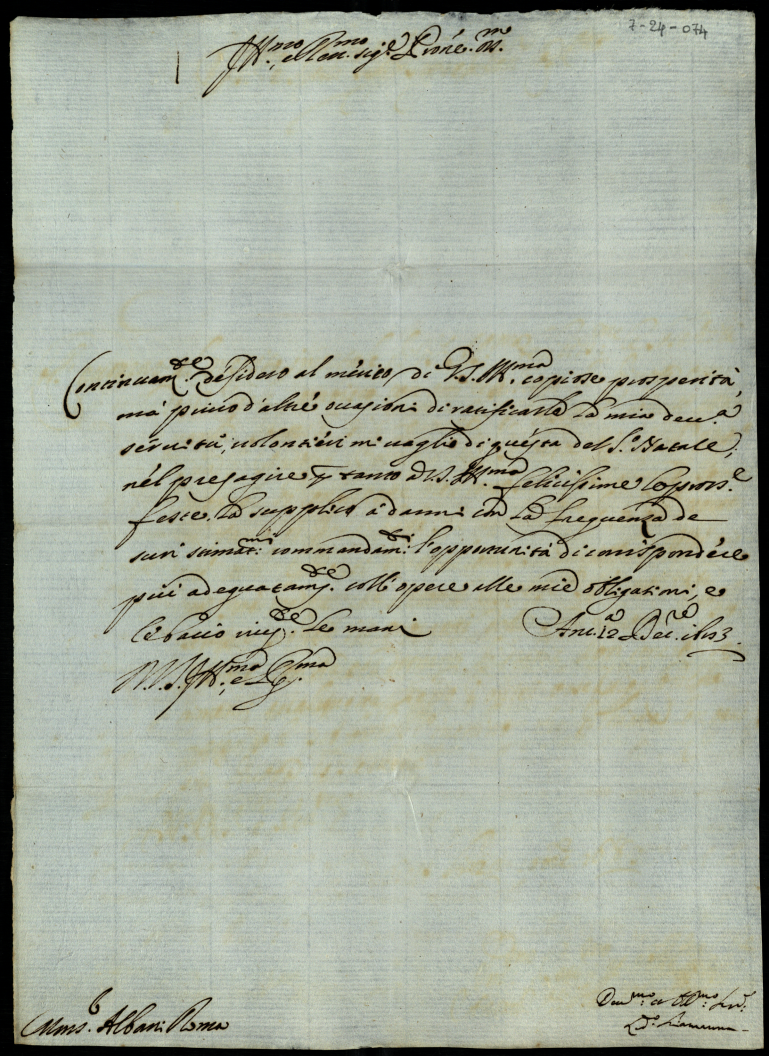 7-24-074
Ill.mo e Rev.mo Sig.r Prõne Col.mo
Continuam.te desidero al merito di V.S. Ill.ma copiose prosperità,
mà privo d'altre occasioni di ratificarle la mia deu.a
seruitù, volontieri mi vaglio di questa del S.o Natale,
nel presagire p tanto à V.S. Ill.ma felicissime le pross.e
feste. la supplico à darmi con la frequenza de
suoi stimat.mi commandam.ti l'opportunità di corrispondere
più adeguatam.te coll'opere alle mie obligationi, e
le bacio riu.te le mani Anc.a 12 Dec.re 1693.
V.S. Ill.ma e R.ma
Mons.r Albani Roma
Deu.mo et Obl.mo Ser.